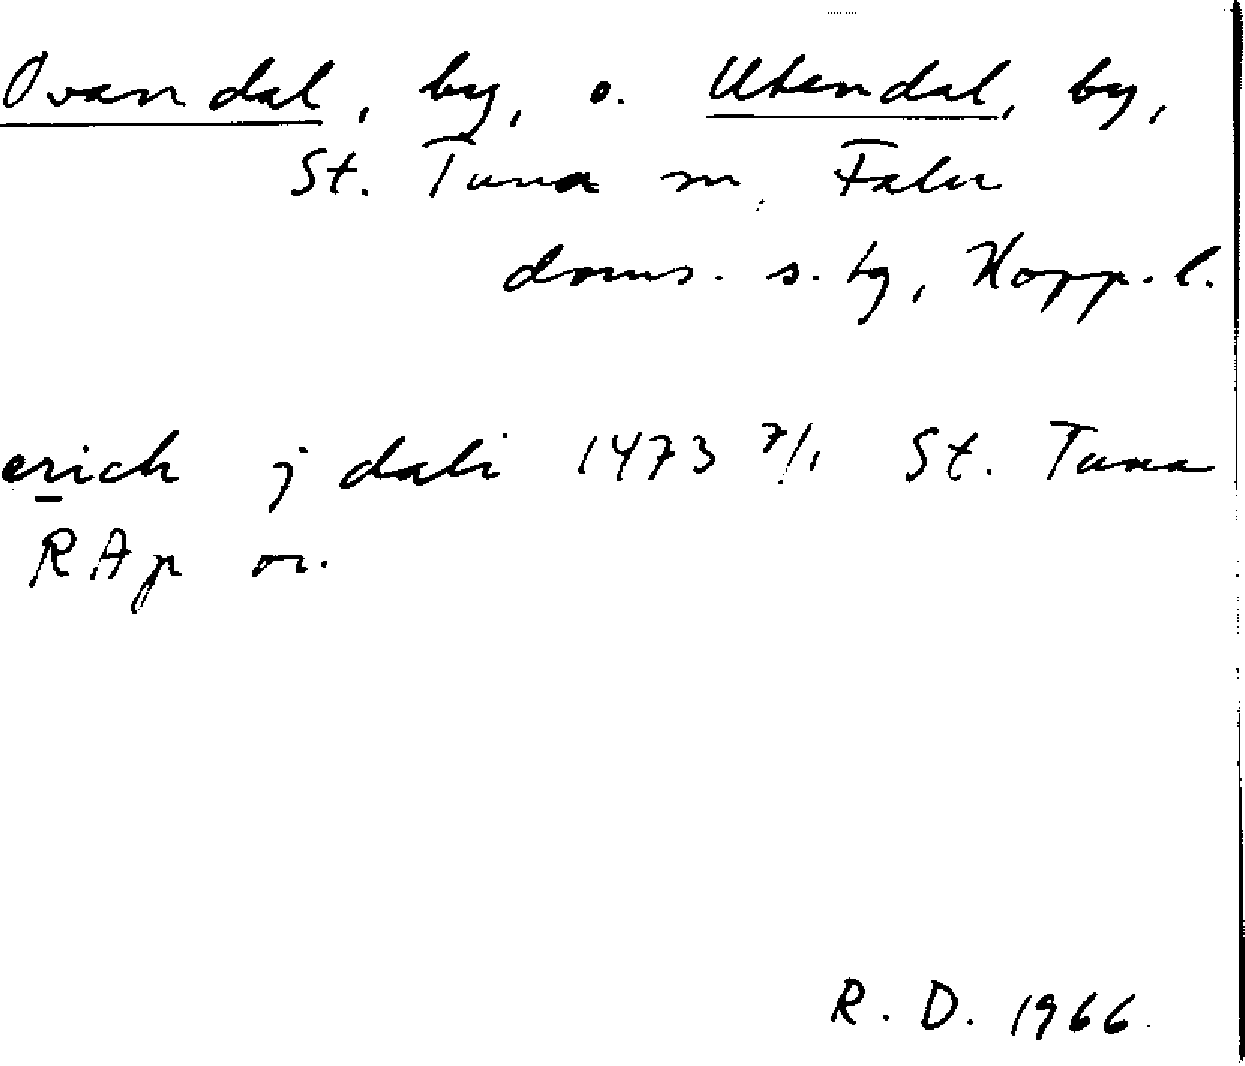 Ovandal, by, o. Utendal, by,
St. Tuna sn, Falu
doms. s. tg, Kopp. l.
erich j dali 1473 7/1 St. Tuna
RAp or.
R. D. 1966.